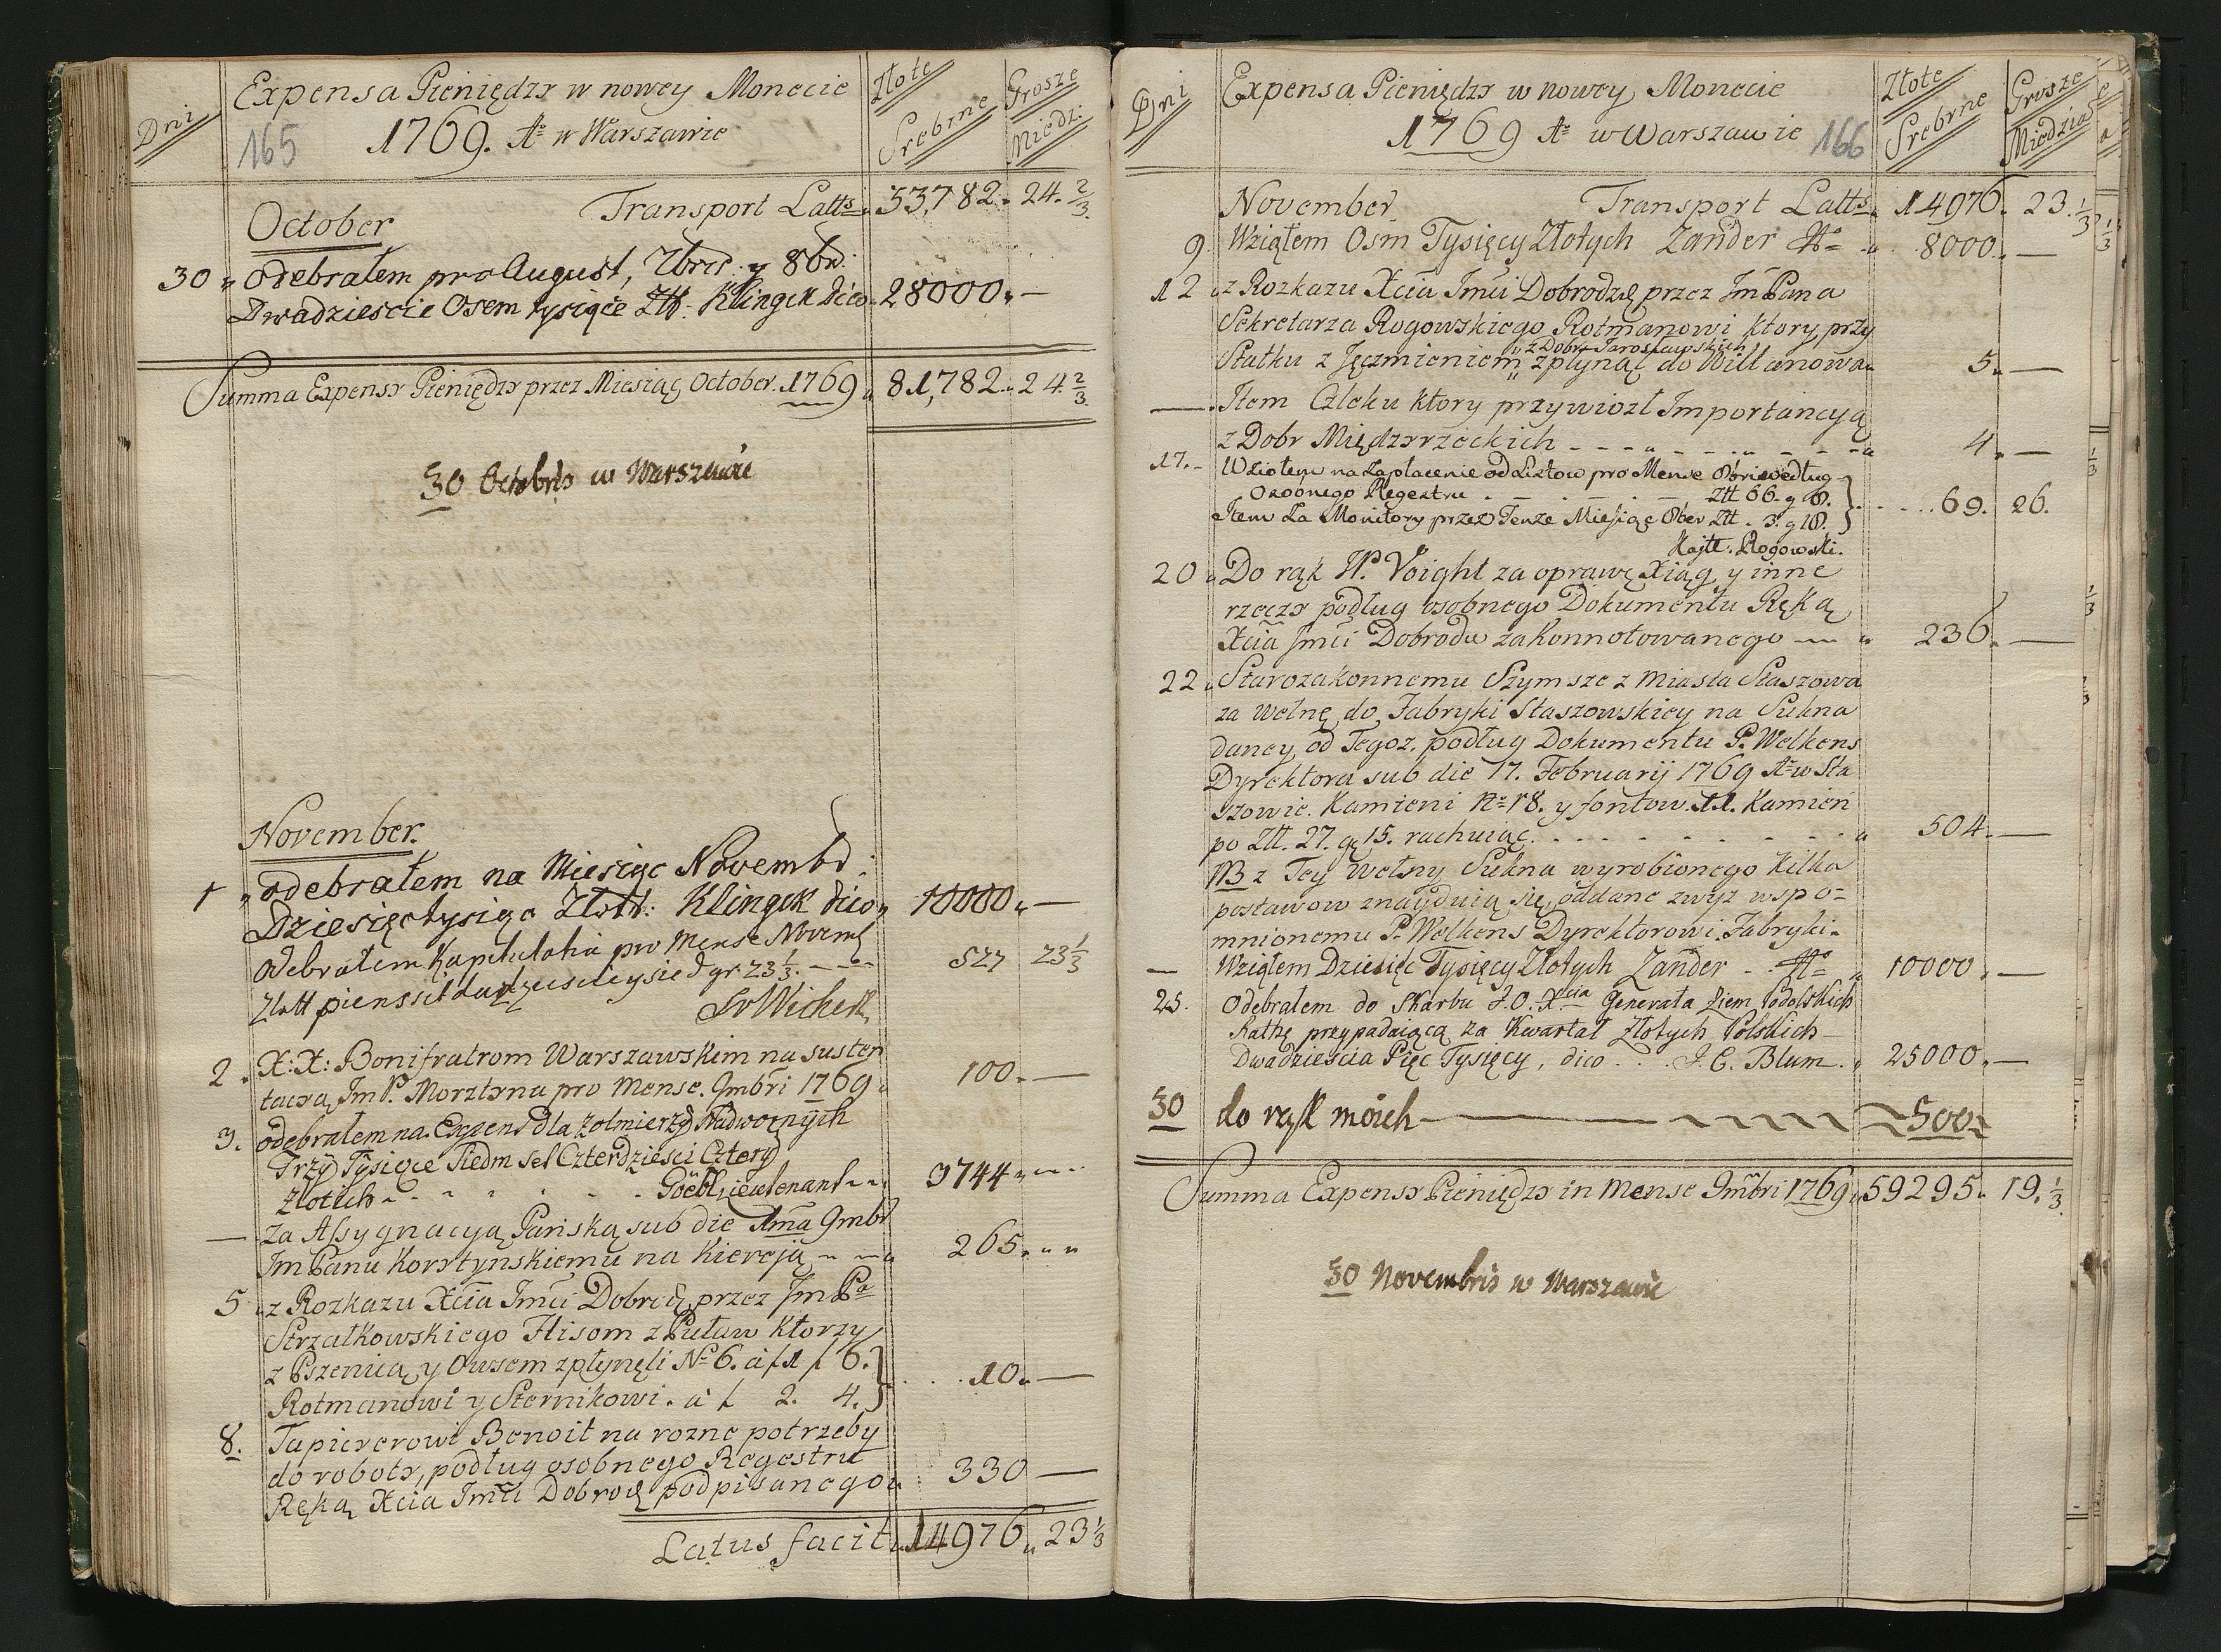 Dni
Expensa Pieniędzy w nowey Monecie
165 1769. Aº w Warszawie
Złote Srebrne
Grosze Miedź:
October Transport Latts 53,782. 24. 2/3.
30 odebrałem pro August, 7bris: y 8br:
Dwadziescie Osem tysięcie Ztt. Klingek dico 28000 —
Summa Expensy Pieniędzy przez Miesiąc October. 1769 81,782. 24 2/3.
30 Octobris w Warszawie
November.
1 odebrałem na Miesiąc Novembr:
Dziesięc tysięc Złott: Klingek dico 10000 —
odebrałem Kapitulatią pro Mense Novemb 527 23 1/3
Złott gr. 23 1/3. — —
2. X: X: Bonifratrom Warszawskim na susten
tacyą Im P. Morztyna pro Mense. 9mbri 1769 100. —
3. odebrałem na Expens dla żołmierzy Nadwornych
Trzy Tysięce Siedm set Czterdziesci Cztery
Złotich Göebl, ieutenant 3744
— Za Assygnacyą Pańską sub die 1ma 9mbr
Im Panu Korytynskiemu na Kiereją 265.
5 z Rozkazu Xcia Imci Dobrdź przez Im Pa
Strzałkowskiego Flisom z Puław Ktorzy
z Pszenicą y Owsem zpłynęli Nº 6. a f 1 f 6.}
Rotmanowi y Sternikowi. a f 2. 4.} 10. —
8. Tapicerowi Benoit na rozne potrzeby
do roboty, podług osobnego Regestru
Ręką Xcia Imci Dobrodź podpisanego 330 —
Latus facit 14976. 23 1/3
Dni
Expensa Pieniędzy w nowey Monecie
1769 Aº w Warszawie 166
Złote Srebrne
Grosze Miedzia
November Transport Latts 14976. 23. 1/3
9. Wziąłem Osm Tysięcy Złotych Zander 8000. —
12 z Rozkazu Xcia Imci Dobrodzę przez Im Pana
Sekretarza Rogowskiego Rotmanowi ktory przy
z Dobr Jarosławskich
Statku z Jęczmieniem zpłynął do Willanowa 5. —
— Item Czleku ktory przywiozł Importancyą
z Dobr Międzyrzeckich 4. —
17. Wziołem na Zapłacenie od Listow pro Mense Obri według
Osobnego Regestru Ztt 66. g 8.}
Item Za Monitory przez Tenze Miesiąc Ober Ztt. 3. g 18.} 69. 26.
Kajtt. Rogowski.
20 Do rąk JP. Voight za oprawę Xiąg y inne
rzeczy podług osobnego Dokumentu Ręką
Xcia Jmci Dobrodz zakonnotowanego 236. —
22 Starozakonnemu Szymsze z Miasta Staszowa
za wełnę do Fabryki Staszowskiey na Sukna
daney, od Tegoz. podług Dokumentu P. Welkens
Dyrektora sub die 17. Februarij 1769 Aº w Sta
szowie. Kamieni Nº 18. y fontow 11. Kamień
po Ztt. 27. g 15. rachuiąc 504. —
NB z Tey wełny Sukna wyrobionego Kilka
postawow znayduią się, oddane zwyz wspo=
mnionemu P. Welkens Dyrektorowi Fabryki.
— Wziąłem Dziesięc Tysięcy Złotych Zander 10000. —
25. Odebrałem do Skarbu J.O. Xcia Generała Ziem Podolskich
Rathę przypadaiącą za Kwartał Złotych Polskich
Dwadziescia Pięc Tysięcy, dico J. C. Blum. 25000. —
30 do rąk moich 500
Summa Expensy Pieniędzy in Mense 9mbri 1769. 59295. 19. 1/3.
30 Novembris w Warszawie